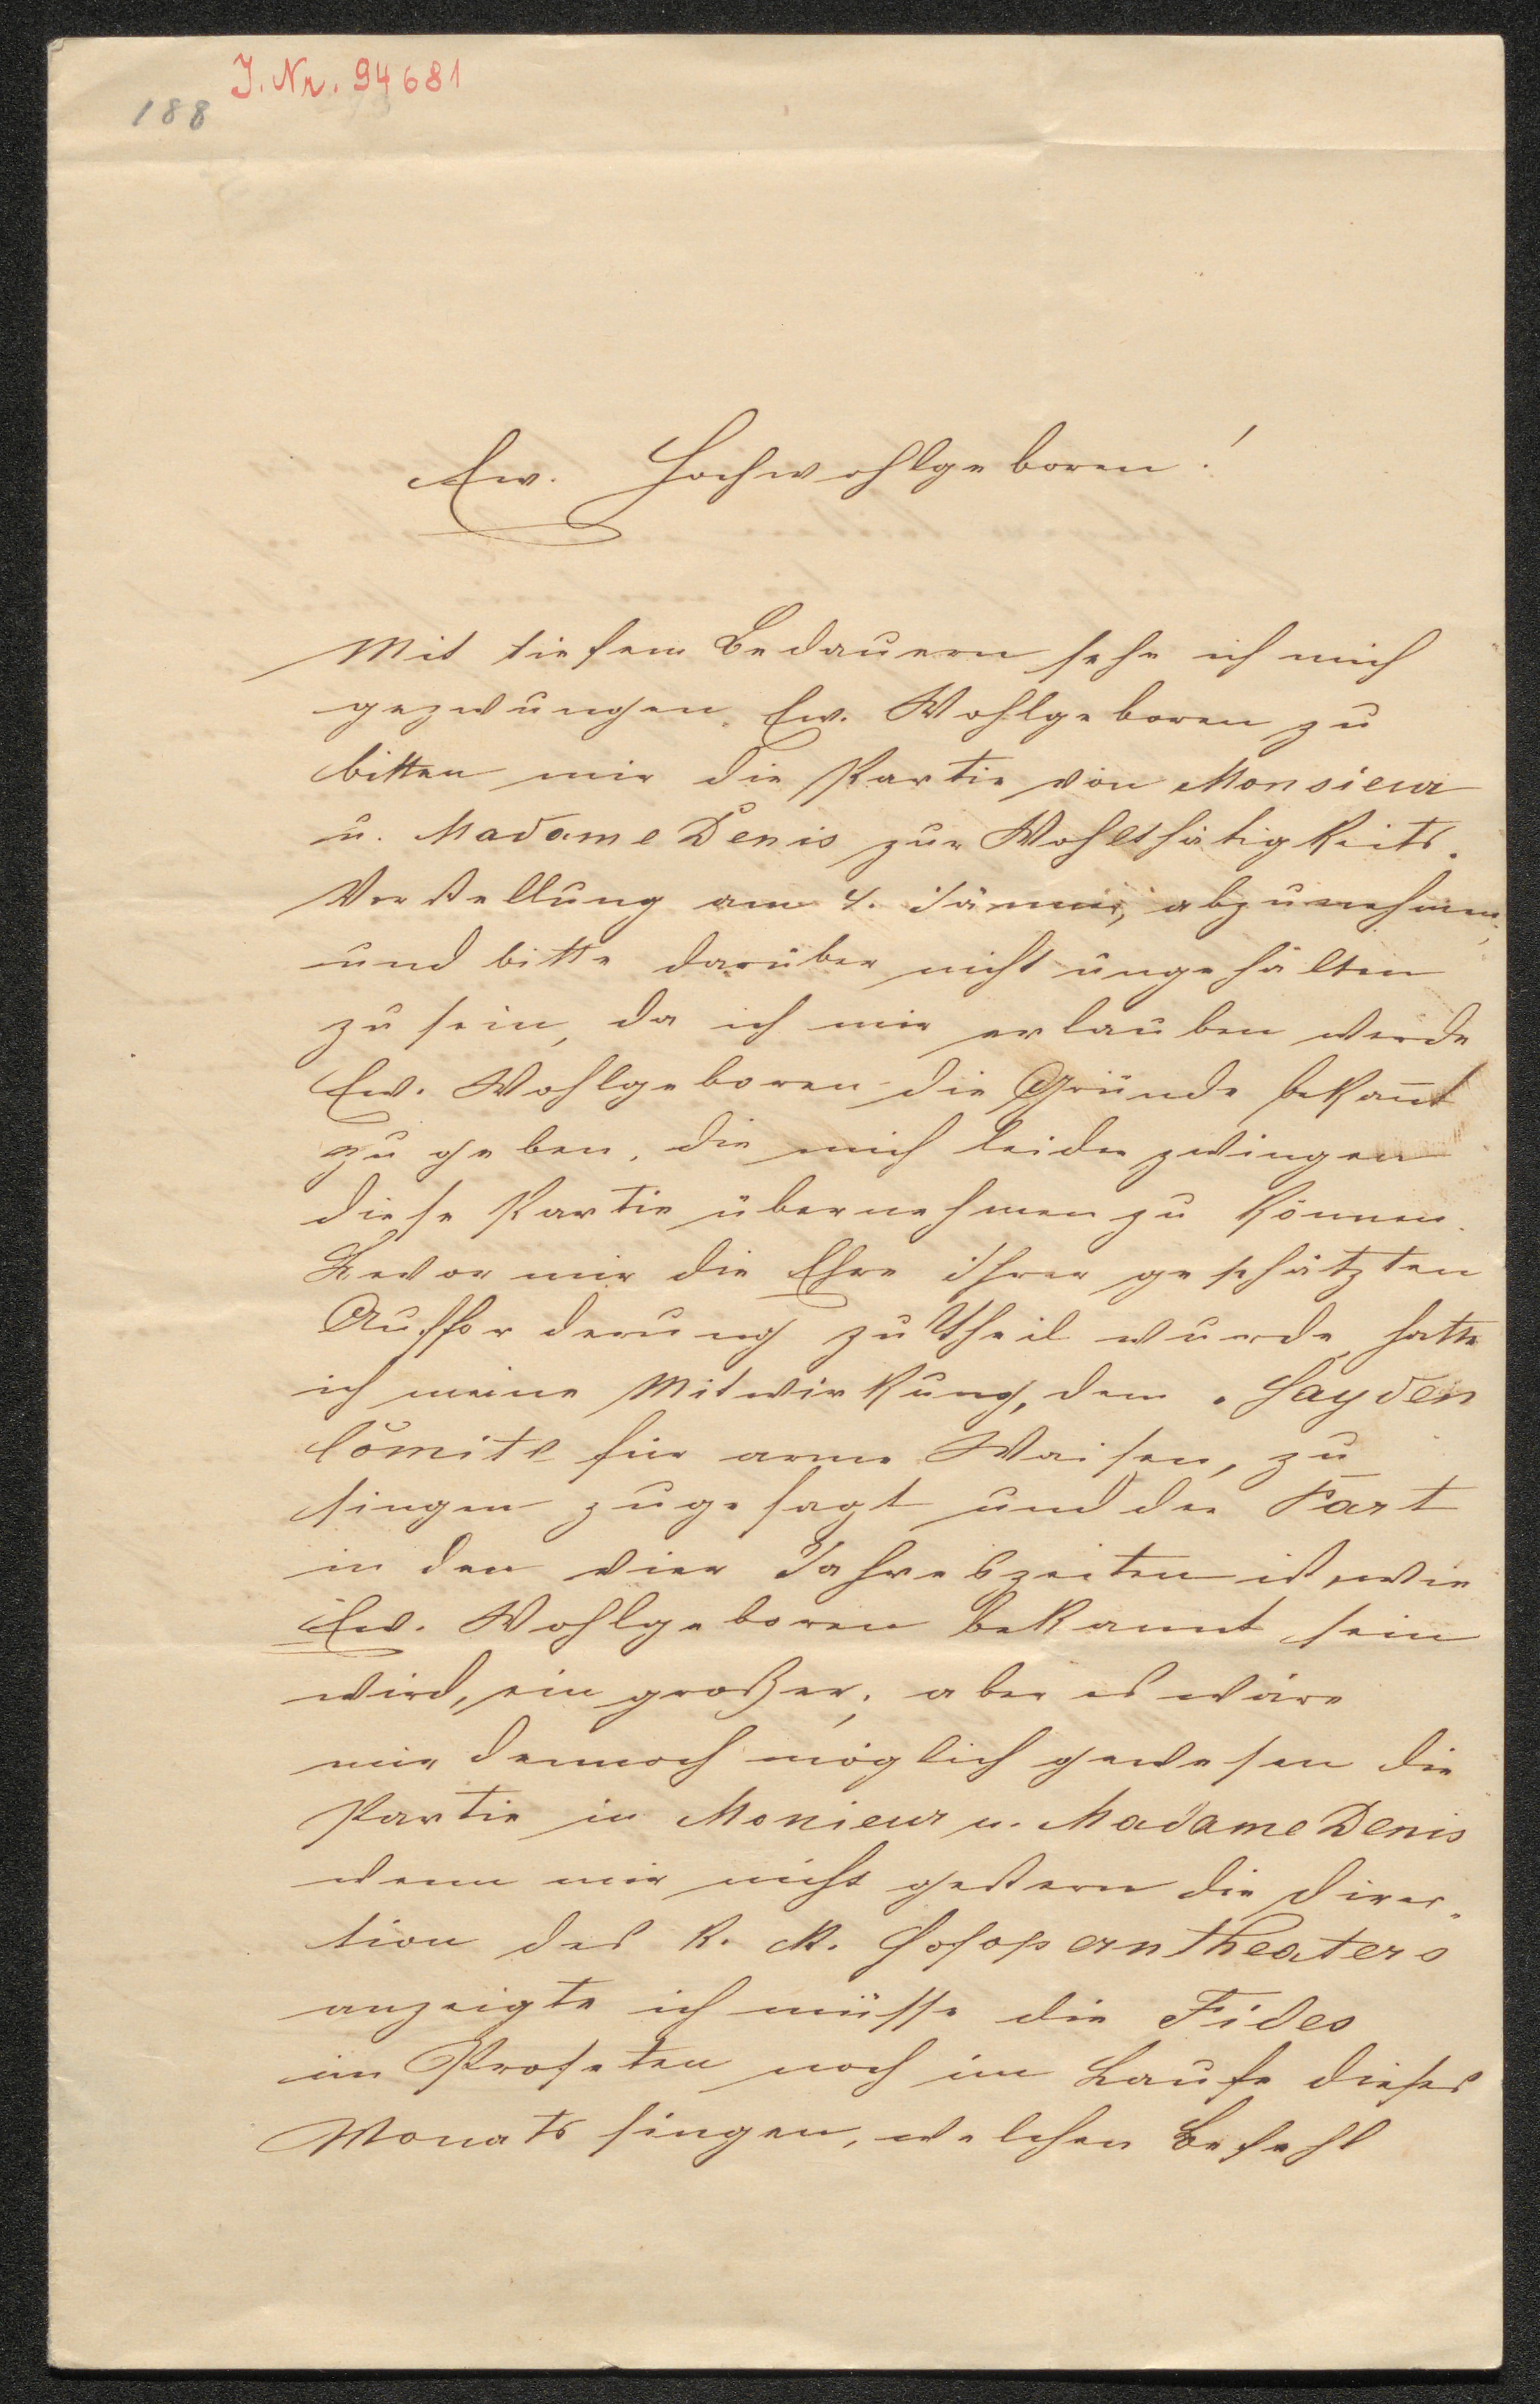 J. Nr. 94681
188
Ew. Hochwohlgeboren!
Mit tiefem Bedauern sehe ich mich
gezwungen Ew. Wohlgeboren zu
bitten mir die Partie von Monsieur
u. Madame Denis zur Wohlthätigkeits-
Vorstellung am 4. Jänner, abzunehmen,
und bitte darüber nicht ungehalten
zu sein, da ich mir erlauben werde
Ew. Wohlgeboren die Gründe bekan̄t
zu geben, die mich leider zwingen
diese Partie übernehmen zu können.
Bevor mir die Ehre Ihrer geschätzten
Aufforderung zu Theil wurde, hatte
ich meine Mitwirkung, dem „Hayden
Comite für arme Waisen, zu
singen zugesagt und der Part
in den vier Jahreszeiten ist, wie
Ew. Wohlgeboren bekannt sein
wird, ein großer, aber es wäre
mir dennoch möglich gewesen die
Partie in Monieur u. Madame Denis
wenn mir nicht gestern die Direc-
tion des k. k. Hofoperntheaters
anzeigte ich müsse die Fides
im Profeten noch im Laufe dieses
Monats singen, welchen Befehl